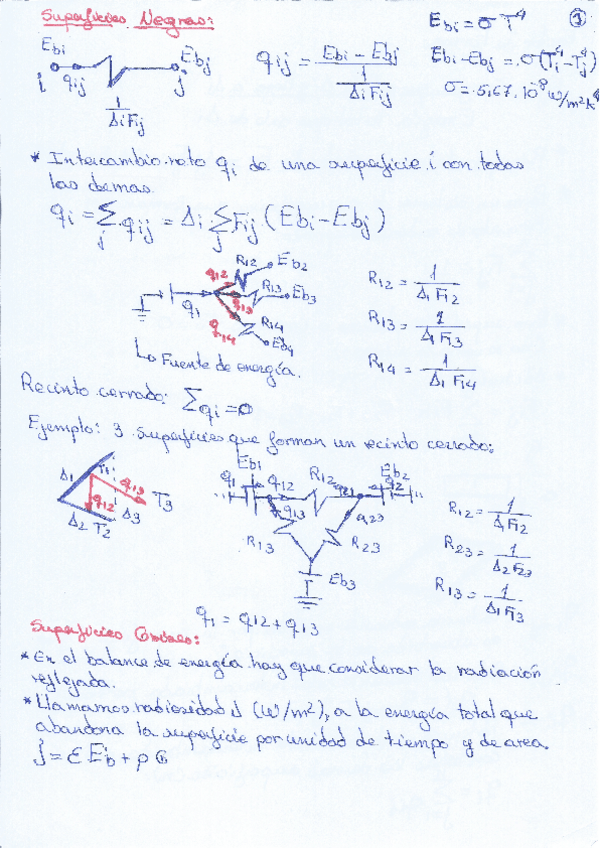 Superficies Negras:
Ebi = σ T⁴
1
Ebi
Ebj
i
qij
j
1/(AiFij)
qij = (Ebi - Ebj) / (1/(AiFij))
Ebi - Ebj = σ(Ti⁴ - Tj⁴)
σ = 5,67·10⁻⁸ W/m²k⁴
* Intercambio neto qi de una superficie i con todas
las demas.
qi = Σj qij = Ai Σj Fij (Ebi - Ebj)
q12
R12
Eb2
q13
R13
Eb3
q1
q14
R14
Eb4
R12 = 1/(A1 F12)
R13 = 1/(A1 F13)
R14 = 1/(A1 F14)
↳ Fuente de energía.
Recinto cerrado: Σqi = 0
Ejemplo: 3 superficies que forman un recinto cerrado:
A1
T1
q13
T3
q12
A3
A2
T2
q1
Eb1
q12
R12
q21
Eb2
q2
q13
q23
R13
R23
Eb3
R12 = 1/(A1F12)
R23 = 1/(A2F23)
R13 = 1/(A1F13)
q1 = q12 + q13
Superficies Grises:
* En el balance de energía hay que considerar la radiación
reflejada.
* Llamamos radiosidad J (W/m²), a la energía total que
abandona la superficie por unidad de tiempo y de area.
J = εEb + ρG